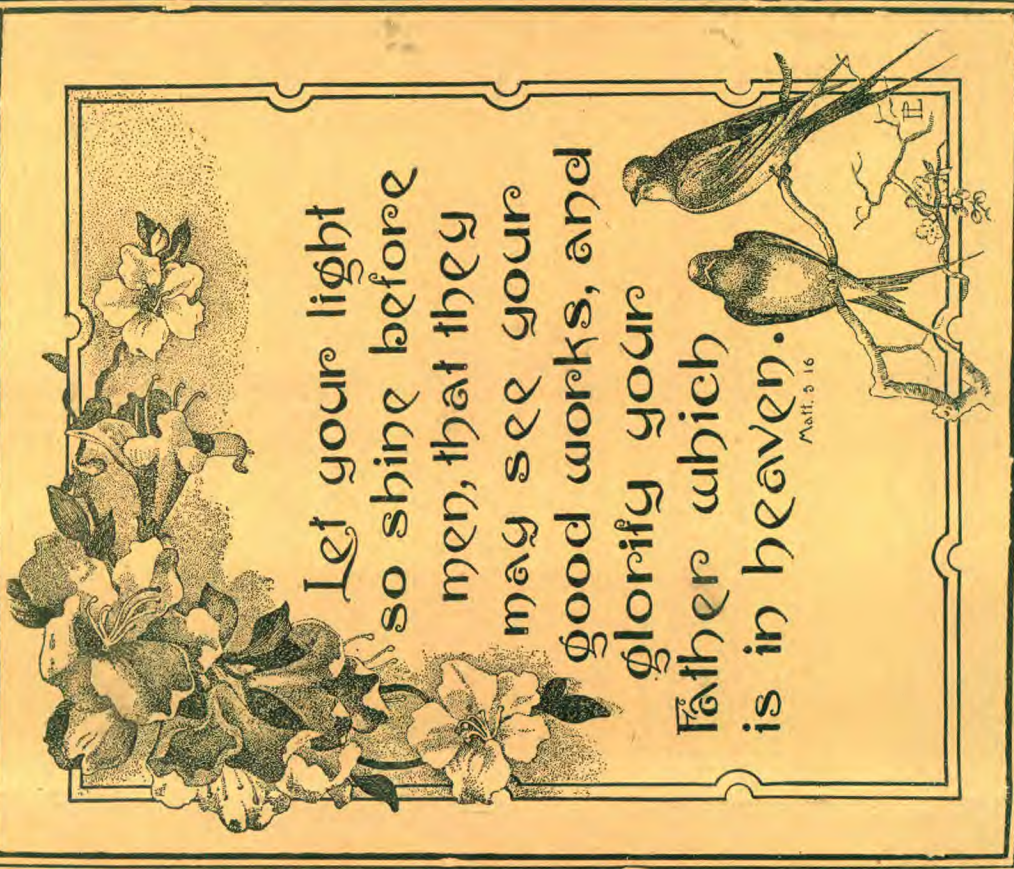 Let your light
so shine before
men, that they
may see your
good works, and
glorify your
Father which
is in heaven.
Matt. 5 16